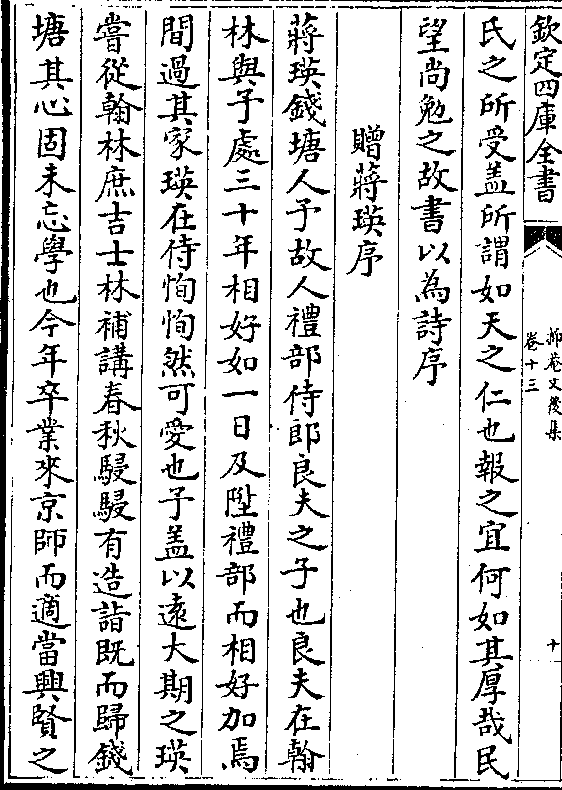 欽定四庫全書
抑菴文後集
卷十三
十
氏之所受盖所謂如天之仁也報之宜何如其厚哉民
望尚勉之故書以為詩序
贈蔣瑛序
蔣瑛錢塘人予故人禮部侍郎良夫之子也良夫在翰
林與予處三十年相好如一日及陞禮部而相好加焉
間過其家瑛在侍恂恂然可愛也予盖以逺大期之瑛
嘗從翰林庶吉士林補講春秋駸駸有造詣既而歸錢
塘其心固未忘學也今年卒業來京師而適當興賢之